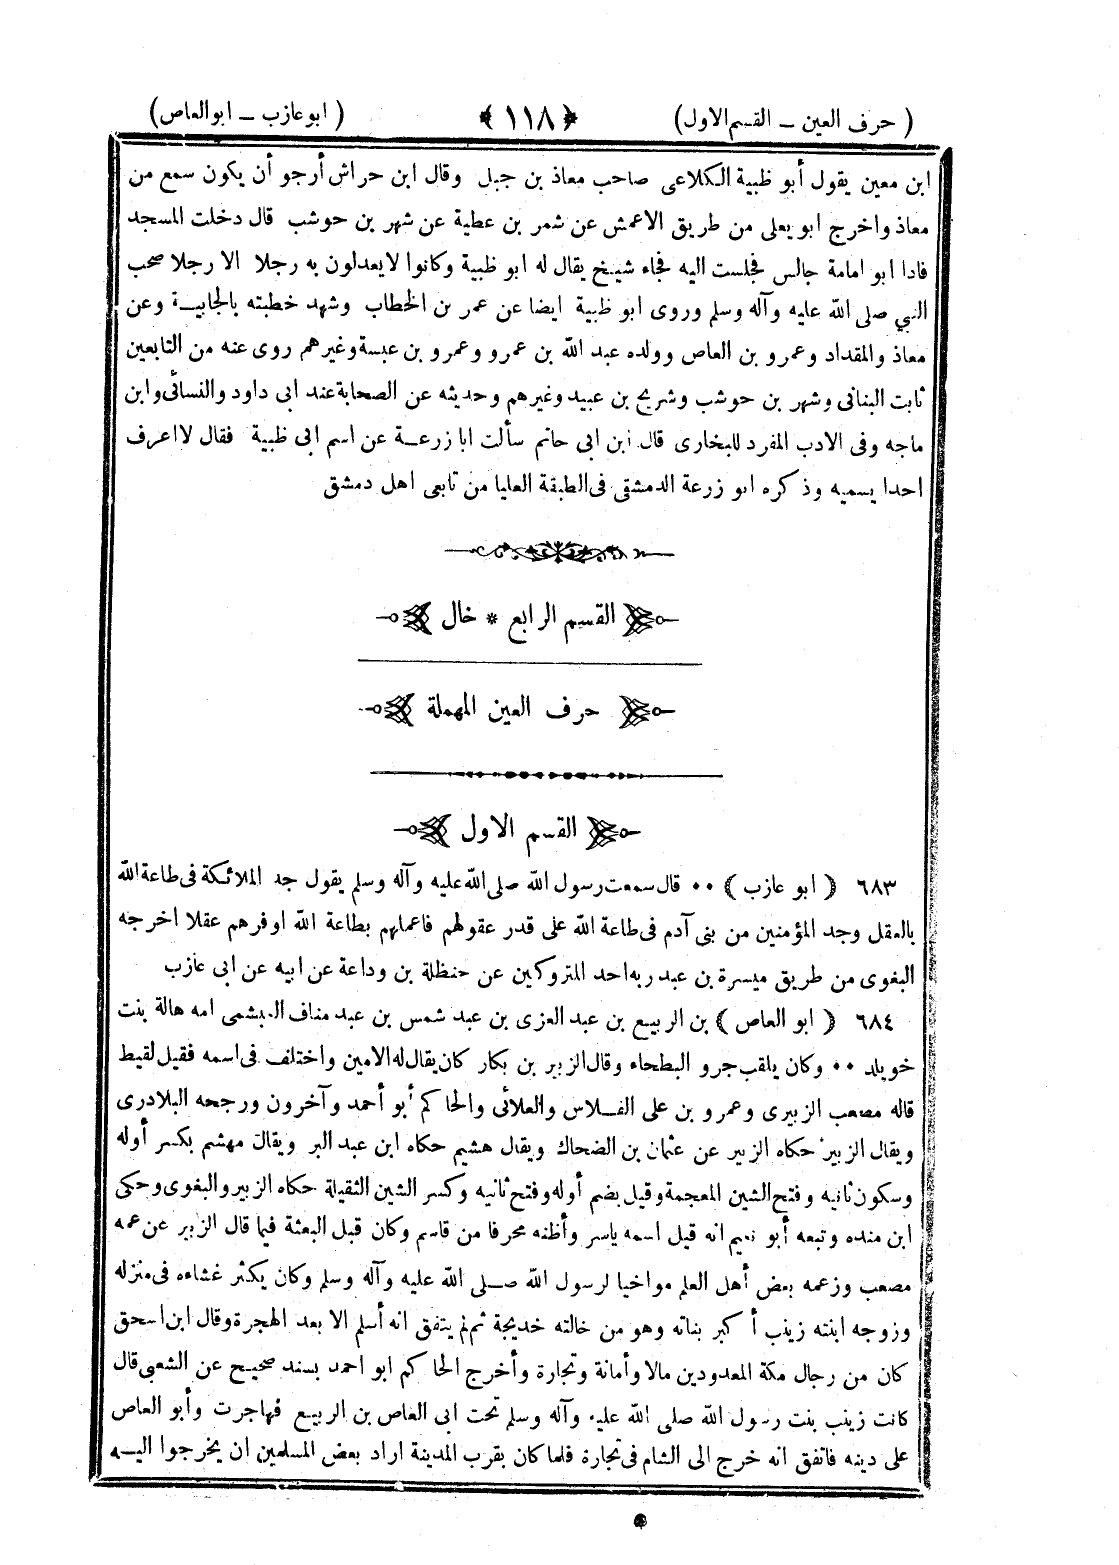 ( حرف العين ــ القسم الاول ) ﴿ ١١٨ ﴾ ( ابو عازب ــ ابو العاص )
ابن معين يقول أبو ظبية الكلاعى صاحب معاذ بن جبل وقال ابن حراش أرجو أن يكون سمع من
معاذ واخرج ابو يعلى من طريق الاعمش عن شمر بن عطية عن شهر بن حوشب قال دخلت المسجد
فاذا ابو امامة جالس فجلست اليه فجاء شيخ يقال له ابو ظبية وكانوا لا يعدلون به رجلا الا رجلا صحب
النبي صلى الله عليه وآله وسلم وروى ابو ظبية ايضا عن عمر بن الخطاب وشهد خطبته بالجابية وعن
معاذ والمقداد وعمرو بن العاص وولده عبد الله بن عمرو وعمرو بن عبسة وغيرهم روى عنه من التابعين
ثابت البنانى وشهر بن حوشب وشريح بن عبيد وغيرهم وحديثه عن الصحابة عند ابى داود والنسائى وابن
ماجه وفى الادب المفرد للبخارى قال ابن ابى حاتم سألت ابا زرعة عن اسم ابى ظبية فقال لا اعرف
احدا يسميه وذكره ابو زرعة الدمشقى فى الطبقة العليا من تابعى اهل دمشق
القسم الرابع * خال
حرف العين المهملة
القسم الاول
٦٨٣ ( ابو عازب ) ٠٠ قال سمعت رسول الله صلى الله عليه وآله وسلم يقول جد الملائكة فى طاعة الله
بالعقل وجد المؤمنين من بنى آدم فى طاعة الله على قدر عقولهم فاعملهم بطاعة الله اوفرهم عقلا اخرجه
البغوى من طريق ميسرة بن عبد ربه احد المتروكين عن حنظلة بن وداعة عن ابيه عن ابى عازب
٦٨٤ ( ابو العاص ) بن الربيع بن عبد العزى بن عبد شمس بن عبد مناف العبشمى امه هالة بنت
خويلد ٠٠ وكان يلقب جرو البطحاء وقال الزبير بن بكار كان يقال له الامين واختلف فى اسمه فقيل لقيط
قاله مصعب الزبيرى وعمرو بن على الفلاس والعلائى والحاكم أبو أحمد وآخرون ورجحه البلاذرى
ويقال الزبير حكاه الزبير عن عثمان بن الضحاك ويقال هشيم حكاه ابن عبد البر ويقال مهشم بكسر أوله
وسكون ثانيه وفتح الشين المعجمة وقيل بضم أوله وفتح ثانيه وكسر الشين الثقيلة حكاه الزبير والبغوى وحكى
ابن منده وتبعه أبو نعيم انه قيل اسمه ياسر وأظنه محرفا من قاسم وكان قبل البعثة فيما قال الزبير عن عمه
مصعب وزعمه بعض أهل العلم مواخيا لرسول الله صلى الله عليه وآله وسلم وكان يكثر غشاءه فى منزله
وزوجه ابنته زينب أكبر بناته وهو من خالته خديجة ثم لم يتفق انه أسلم الا بعد الهجرة وقال ابن اسحق
كان من رجال مكة المعدودين مالا وأمانة وتجارة وأخرج الحاكم ابو احمد بسند صحيح عن الشعبى قال
كانت زينب بنت رسول الله صلى الله عليه وآله وسلم تحت ابى العاص بن الربيع فهاجرت وأبو العاص
على دينه فاتفق انه خرج الى الشام فى تجارة فلما كان بقرب المدينة اراد بعض المسلمين ان يخرجوا اليه